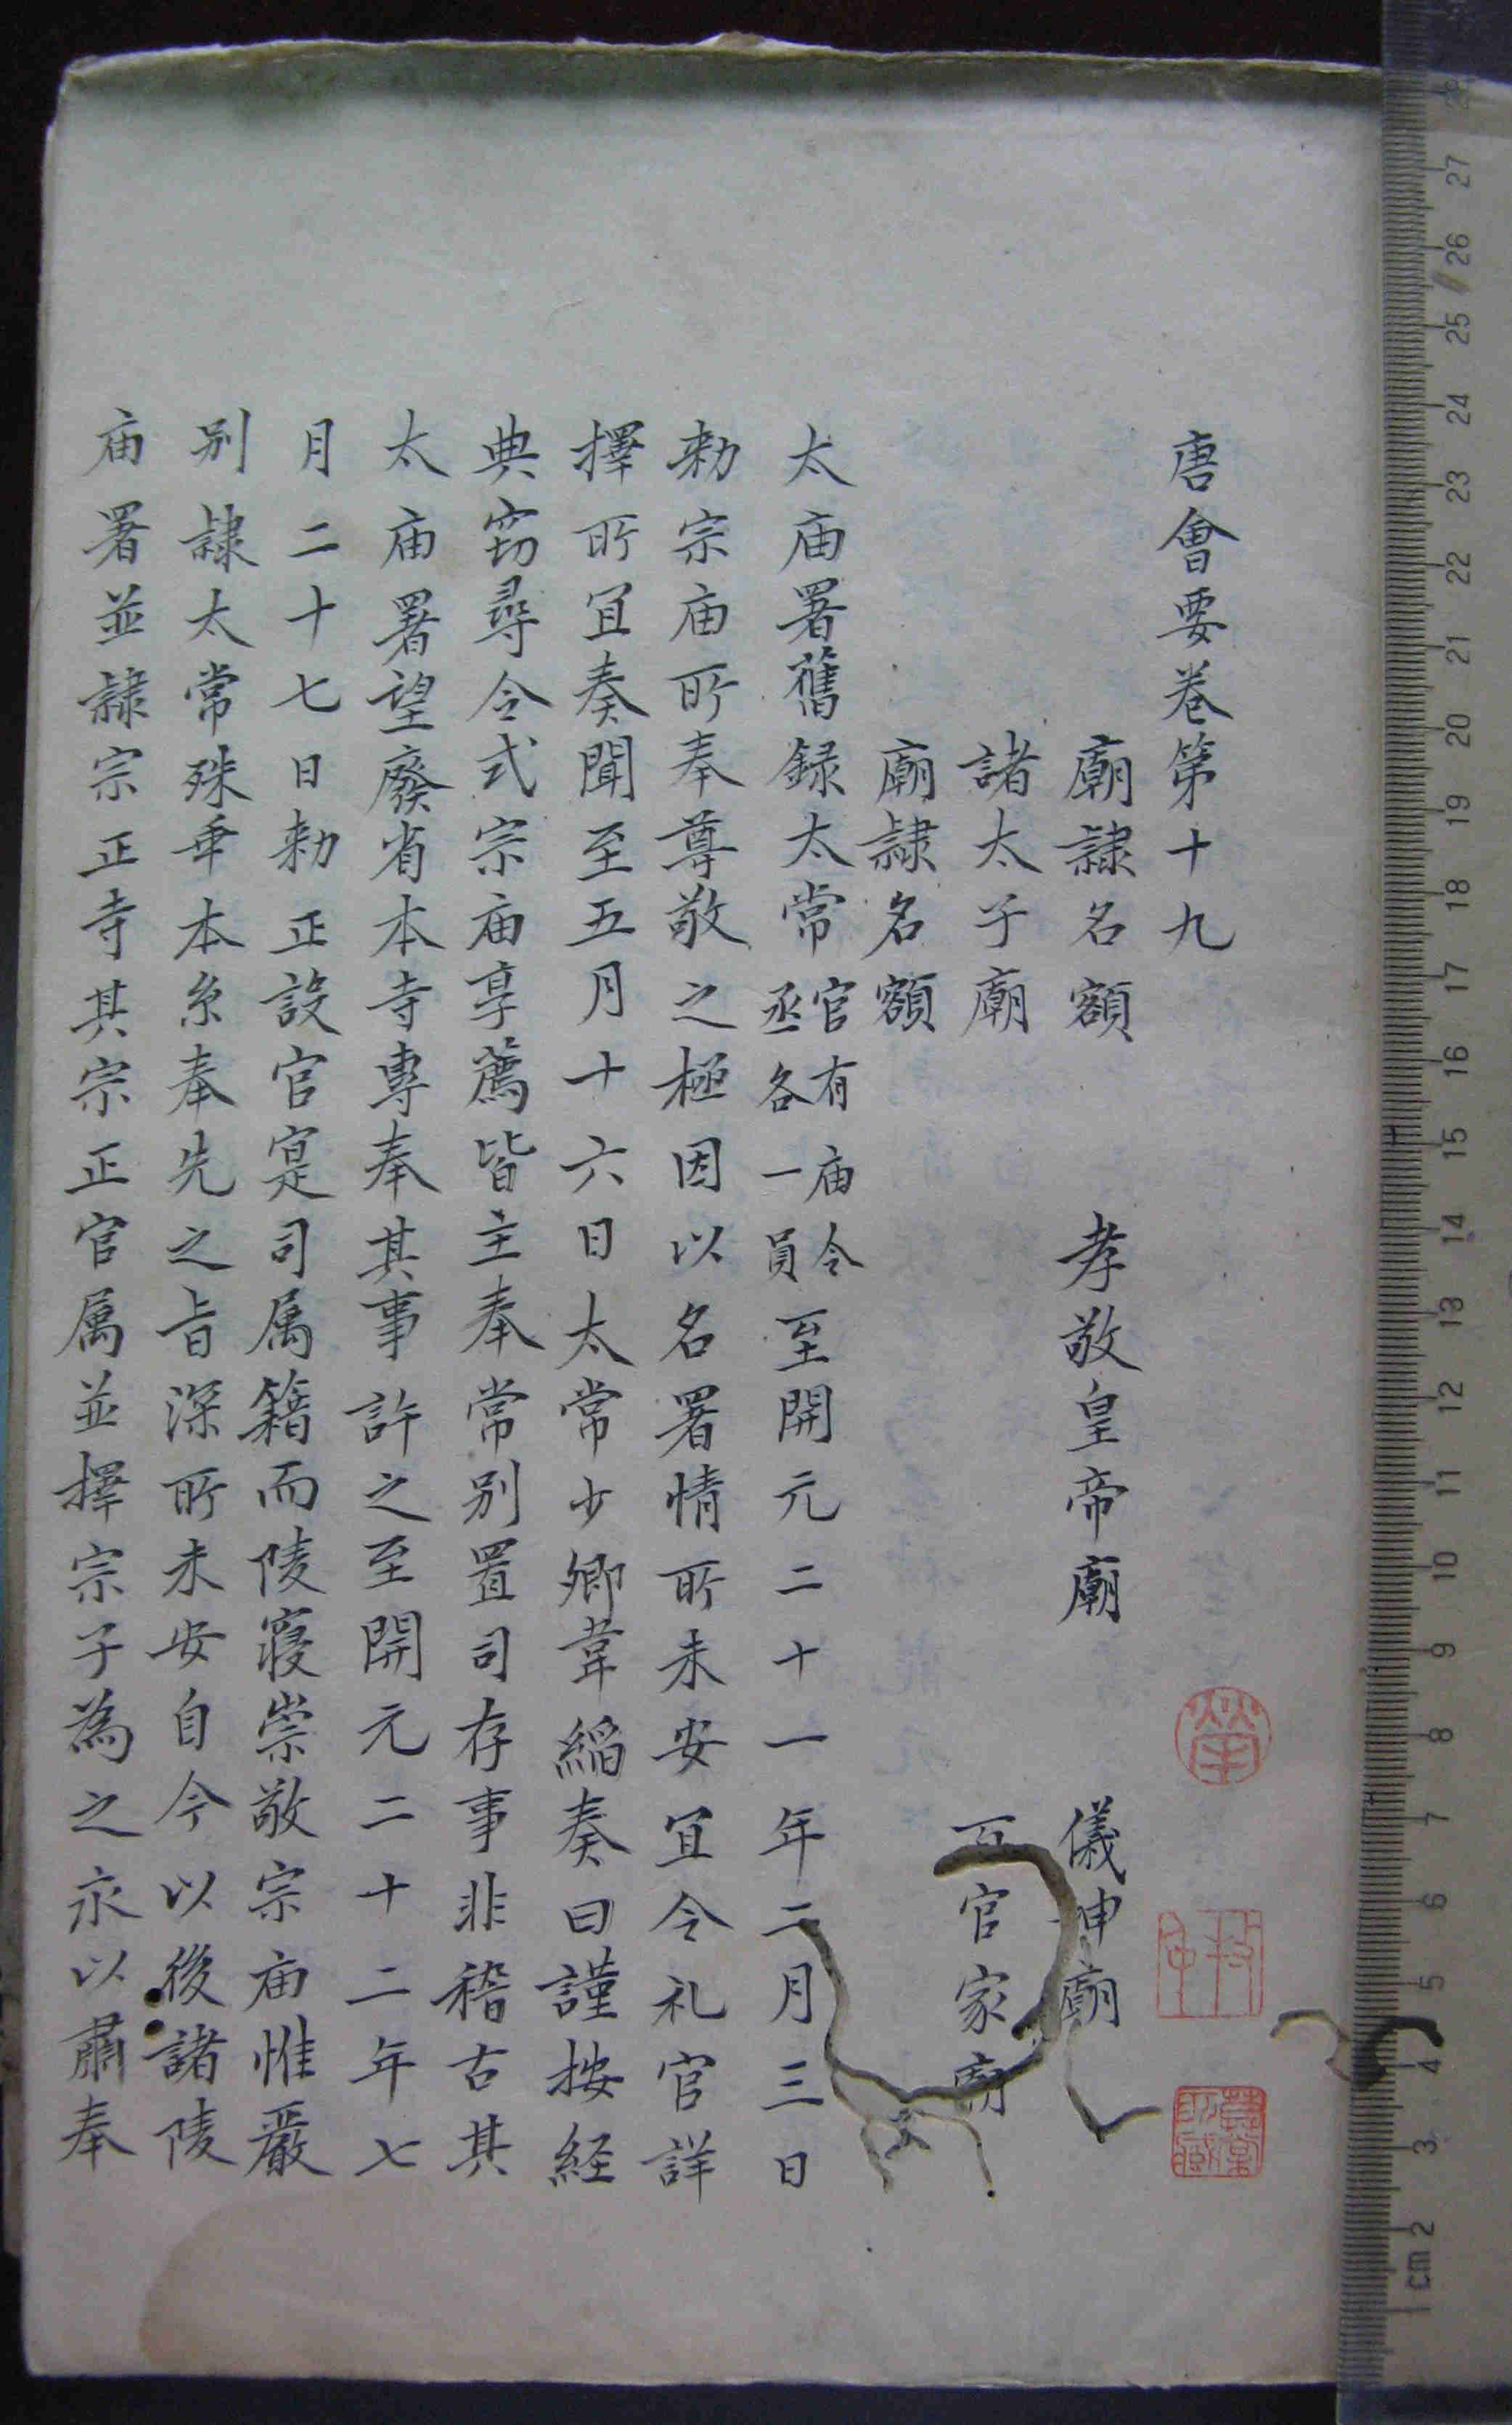 唐會要卷第十九
廟隷名額 孝敬皇帝廟 儀坤廟
諸太子廟 百官家廟
廟隷名額
太庙署舊録太常官有庙令丞各一員至開元二十一年二月三日
勑宗庙所奉尊敬之極因以名署情所未安宜令礼官詳
擇所宜奏聞至五月十六日太常少卿韋縚奏曰謹按経
典窃尋令式宗庙享薦皆主奉常別置司存事非稽古其
太庙署望廢省本寺專奉其事許之至開元二十二年七
月二十七日勑正設官寔司属籍而陵寝崇敬宗庙惟嚴
別隷太常殊乖本系奉先之旨深所未安自今以後諸陵
庙署並隷宗正寺其宗正官属並擇宗子為之永以肅奉